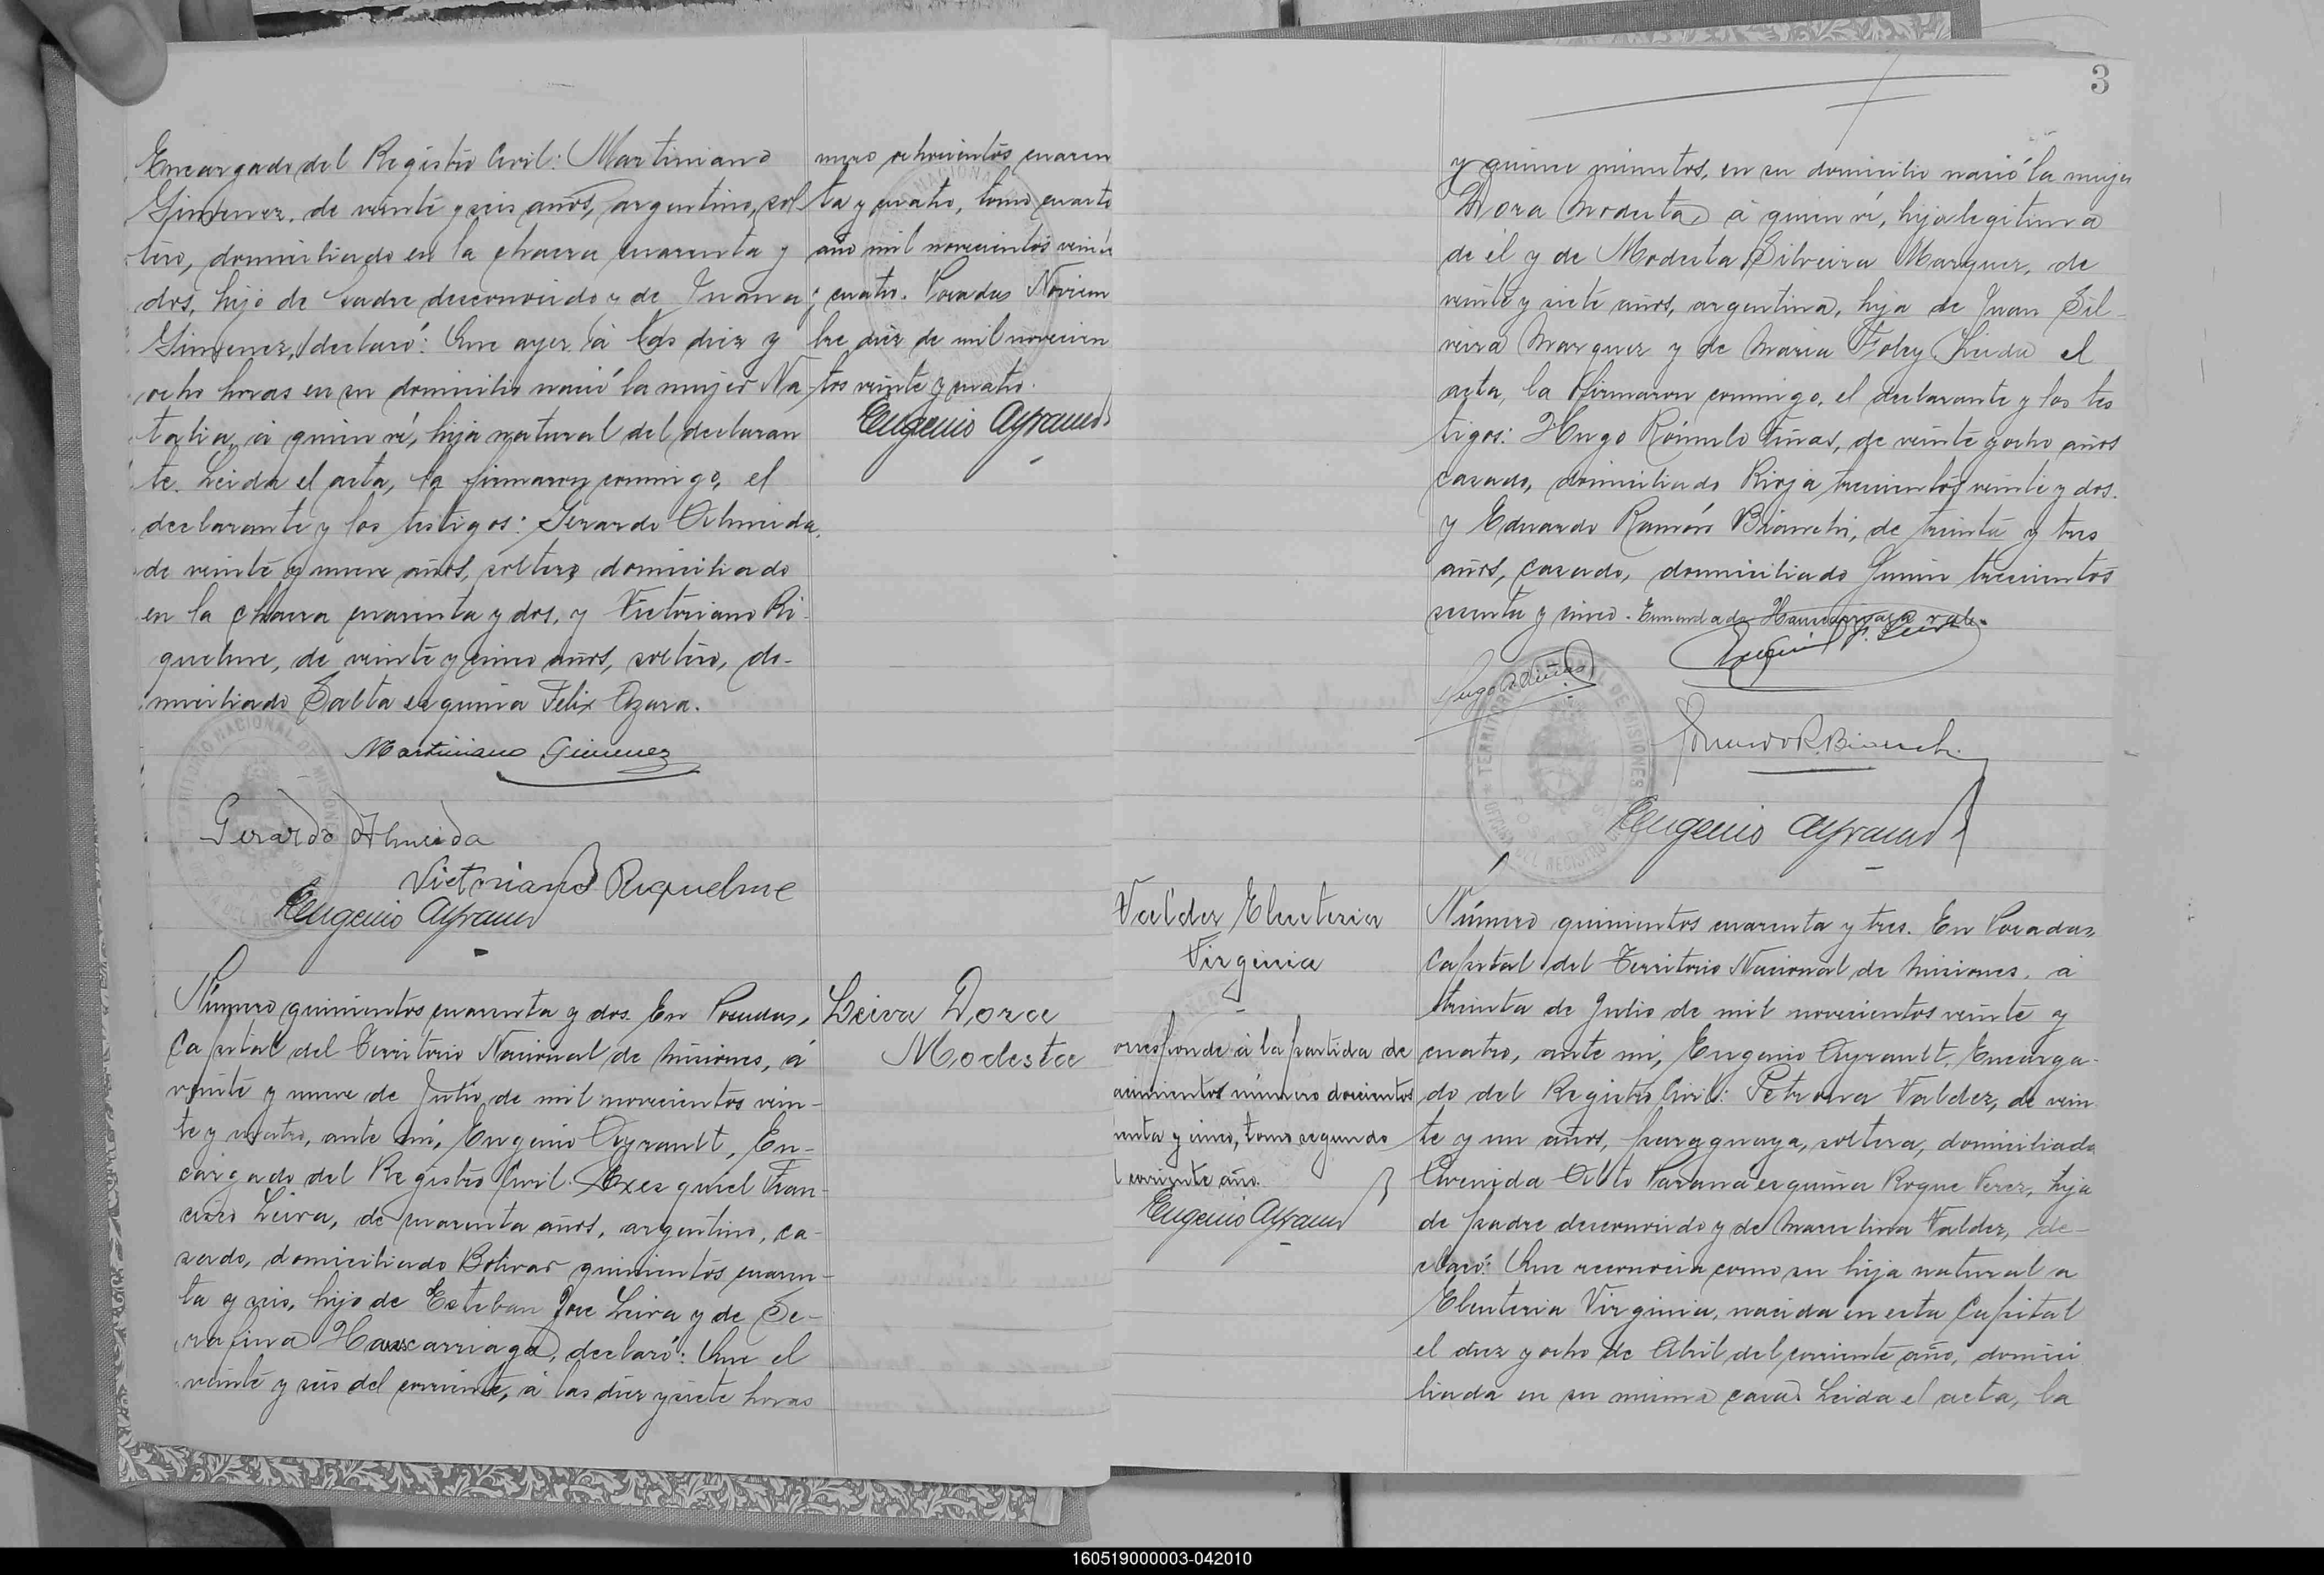 Encargado del Registro Civil: Martiniano
Gimenez, de veinte y seis años, argentino, sol-
tero, domiciliado en la chacra cuarenta y
dos, hijo de padre desconocido y de Juana
Gimenez, declaró: Que ayer á las diez y
ocho horas en su domicilio nació la mujer Na-
talia, á quien ví, hija natural del declaran
te. Leida el acta, la firmaron conmigo, el
declarante y los testigos: Gerardo Almeida,
de veinte y nueve años, soltero, domiciliado
en la chacra cuarenta y dos, y Victoriano Ri-
quelme, de veinte y cinco años, soltero, do-
miciliado Salta esquina Felix Azara.
Martiniano Gimenez
Gerardo Almeida
Victoriano Riquelme
Eugenio Ayrault
mero ochocientos cuaren
ta y cuatro, tomo cuarto
año mil novecientos veinte
y cuatro. Posadas Noviem
bre diez de mil novecien
tos veinte y cuatro.
Eugenio Ayrault
Número quinientos cuarenta y dos. En Posadas,
Capital del Territorio Nacional de Misiones, á
veinte y nueve de Julio de mil novecientos vein-
te y cuatro, ante mí, Eugenio Ayrault, En-
cargado del Registro Civil: Exequiel Fran-
cisco Leiva, de cuarenta años, argentino, ca-
sado, domiciliado Bolivar quinientos cuaren-
ta y seis, hijo de Esteban Jose Leiva y de Se-
rafina Hauscarriaga, declaró: Que el
veinte y seis del corriente, á las diez y siete horas
Leiva Dora
Modesta
3
y quince minutos, en su domicilio nació la mujer
Dora Modesta, á quien ví, hija legitima
de él y de Modesta Silveira Marquez, de
veinte y siete años, argentina, hija de Juan Sil-
veira Marquez y de Maria Foley. Leida el
acta, la firmaron conmigo, el declarante y los tes
tigos: Hugo Rómulo Viñas, de veinte y ocho años
casado, domiciliado Rioja trescientos veinte y dos.
y Eduardo Ramón Bianchi, de treinta y tres
años, casado, domiciliado Junin trescientos
sesenta y cinco. Enmendado Hauscarriaga vale.
Hugo R Viñas
Eduardo R. Bianchi
Eugenio Ayrault
TERRITORIO NACIONAL DE MISIONES
POSADAS
OFICINA DEL REGISTRO CIVIL
Valdez Eleuteria
Virginia
orresponde á la partida de
acimientos número doscientos
enta y cinco, tomo segundo
l corriente año.
Eugenio Ayrault
Número quinientos cuarenta y tres. En Posadas,
Capital del Territorio Nacional de Misiones, á
treinta de Julio de mil novecientos veinte y
cuatro, ante mí, Eugenio Ayrault, Encarga-
do del Registro Civil: Petrona Valdez, de vein
te y un años, paraguaya, soltera, domiciliada
Avenida Alto Paraná esquina Roque Perez, hija
de padre desconocido y de Marcelina Valdez, de-
claró: Que reconocia como su hija natural a
Eleuteria Virginia, nacida en esta Capital
el diez y ocho de Abril del corriente año, domici
liada en su misma casa. Leida el acta, la
160519000003-042010